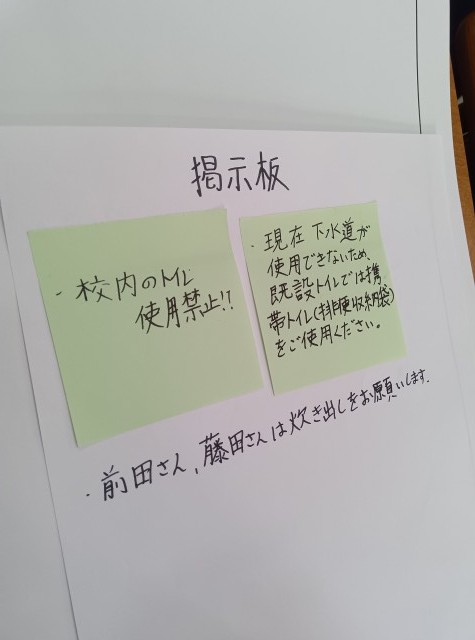 掲示板
・校内のトイレ
使用禁止!!
・現在下水道が
使用できないため、
既設トイレでは携
帯トイレ(排便収納袋)
をご使用ください。
・前田さん、藤田さんは炊き出しをお願いします。